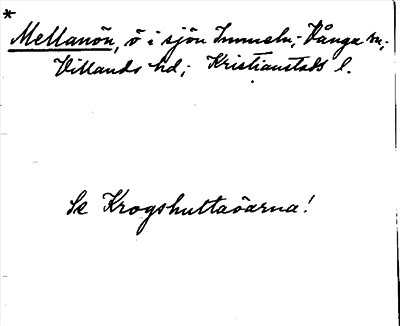 *
Mellanön, ö i sjön Immeln; Vånga sn;
Villands hd; Kristianstads l.
Se Krogshuttaöarna!